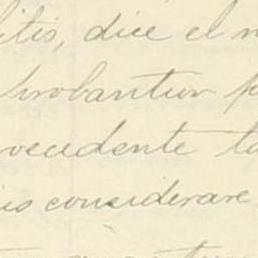 litis, dice el m
probantur p
rocedente ta
is considerare